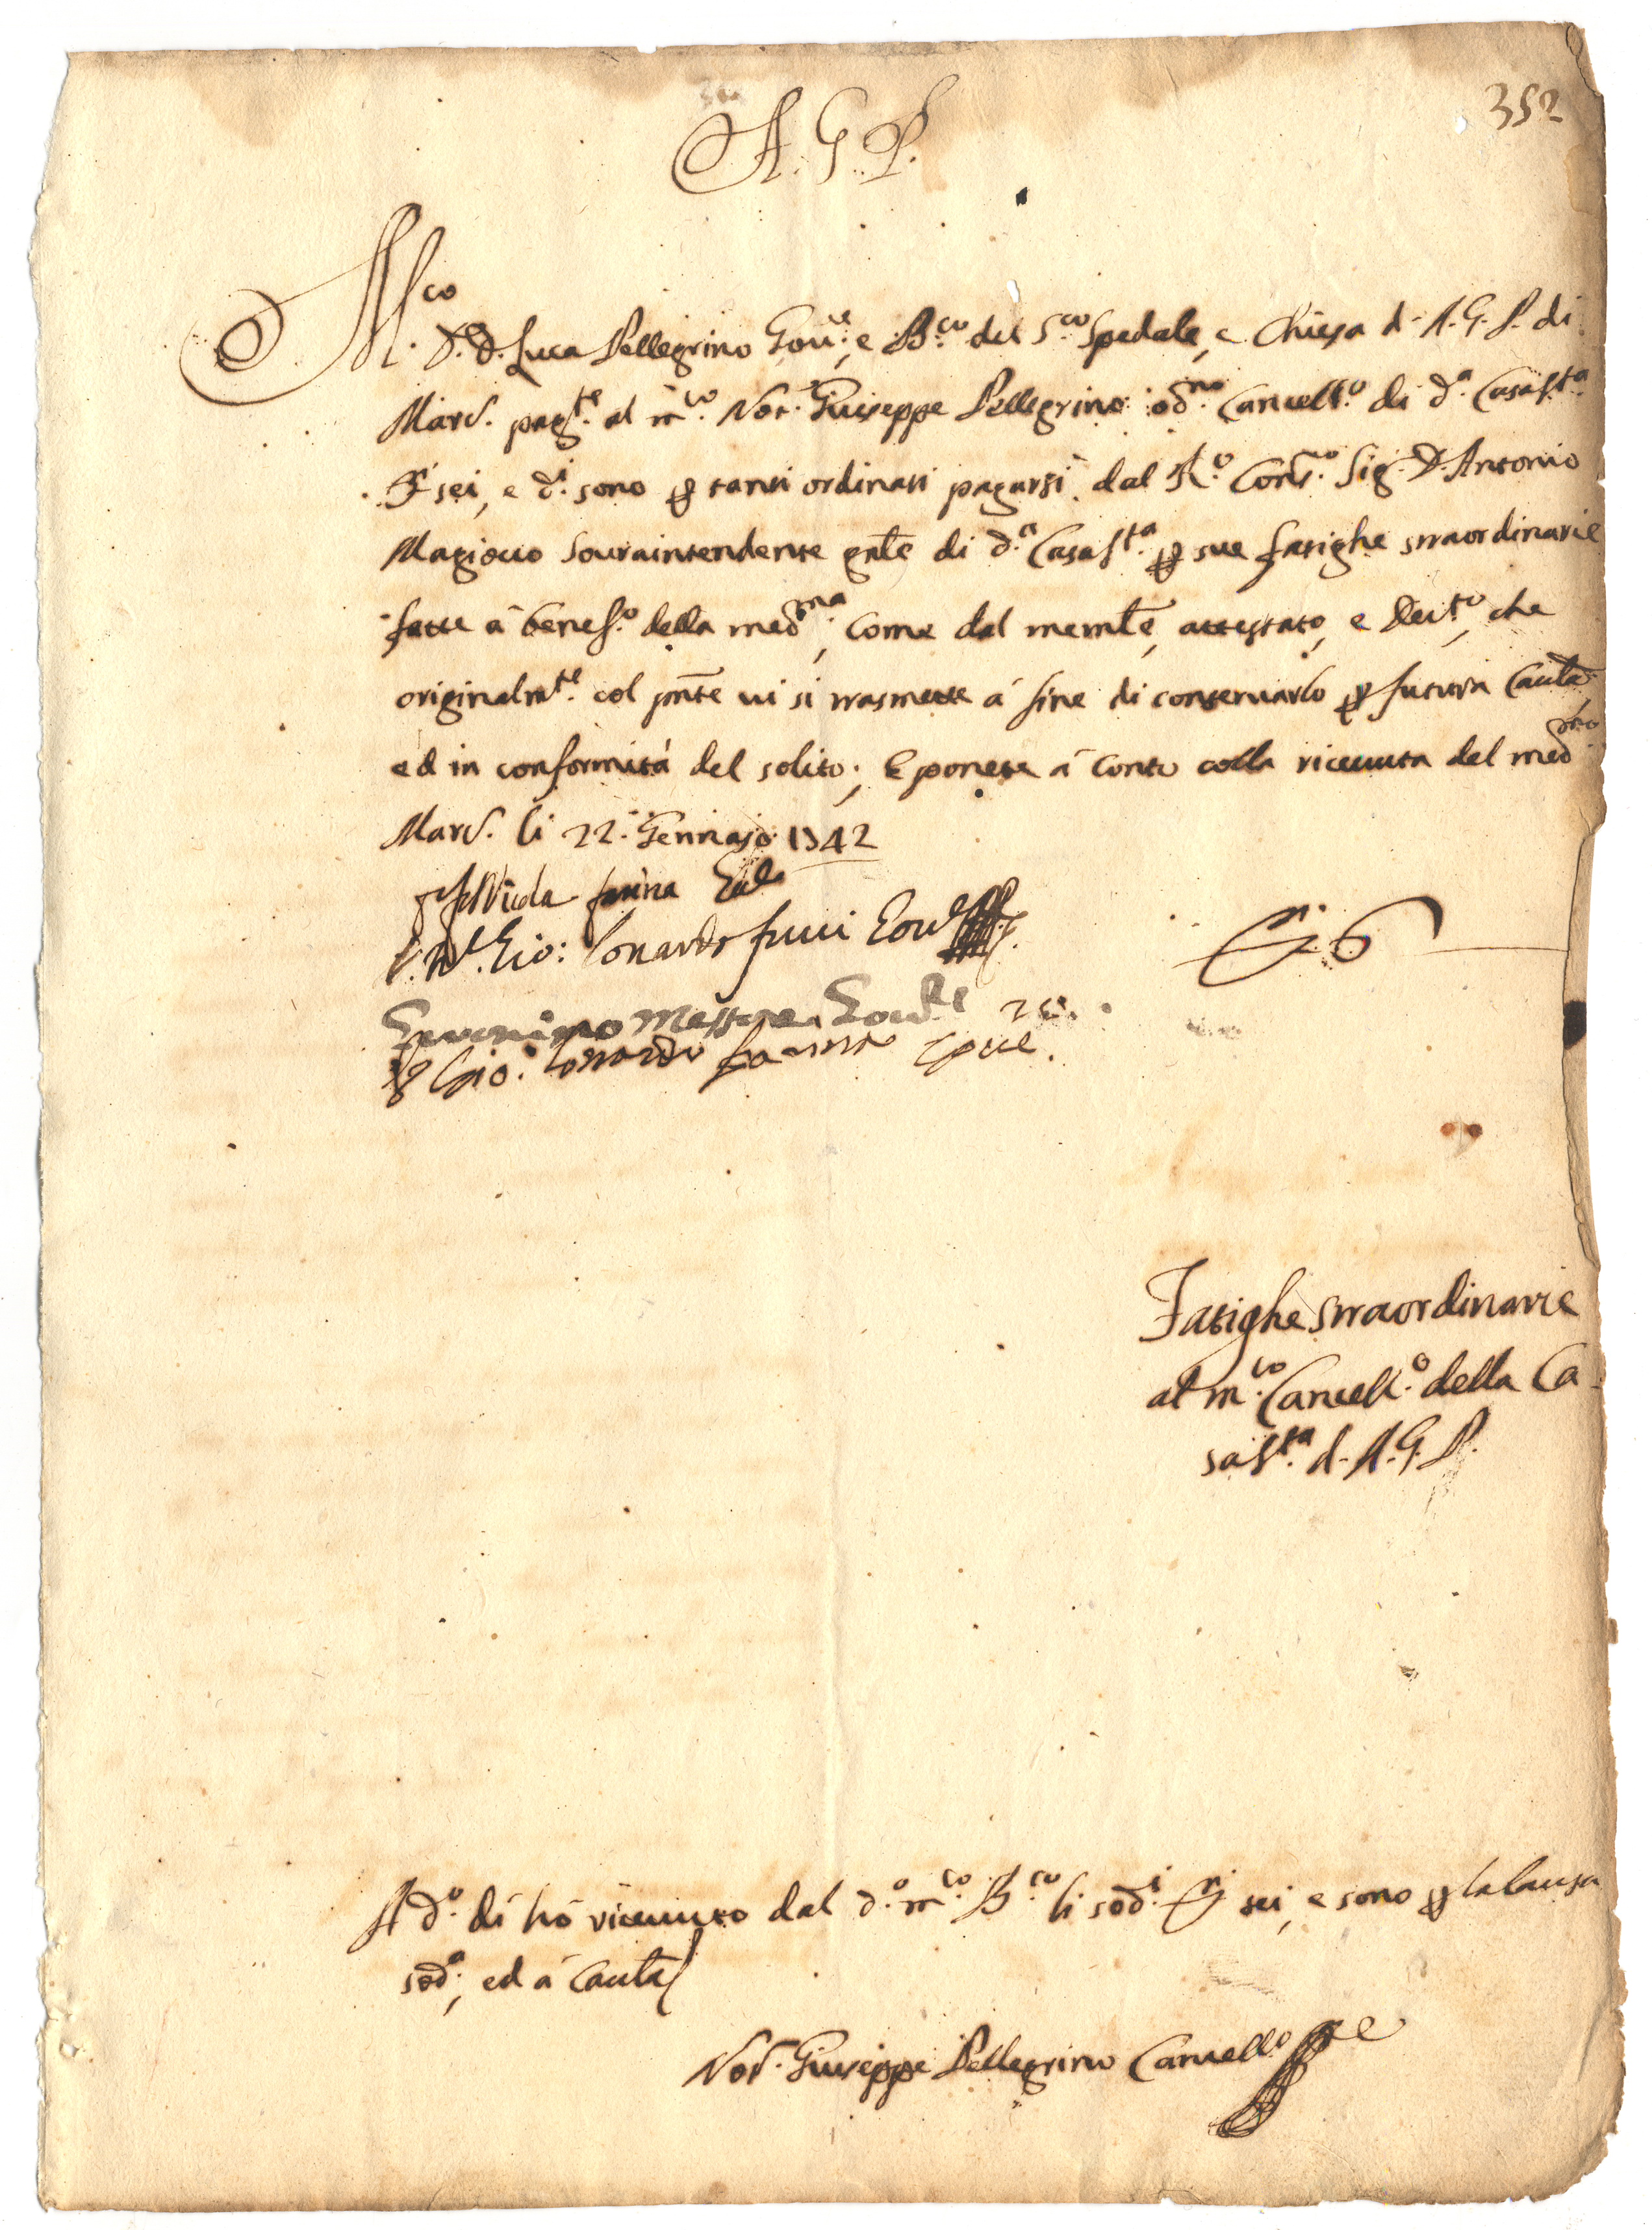 352
A. G. P.
M.co D. D. Luca Pellegrino Gou.re, e B.co del S.co Spedale, e Chiesa d. A. G. P. di
Mard. pag.te al m.co Not. Giuseppe Pellegrino od.no Cancell.o di d.a Casa S.ta
D.i sei, e d.i sono p tanti ordinati pagarsi dal R.o Cons.ro Sig. D. Antonio
Magiocco Souraintendente gnle di d.a Casa S.ta p sue fatighe straordinarie
fatte à benef.o della med.ma, come dal memle, attestato, e Decr.to, che
originalm.te col pnte ui si trasmette á fine di conseruarlo p futura Cautla
ed in conformità del solito; E ponete á conto colla riceuuta del med.mo
Mard. li 22. Gennajo 1742
Nicola farina
Gio: Lonardo fucci Gou.re
Geronimo Messere Gou.re
Gio: Lonardo
D.i 6
Fatighe straordinarie
al m.co Cancell.o della Ca
sa S.ta d. A. G. P.
A d.o dí hò riceuuto dal d.o m.co B.co li sod.i D.i sei, e sono p la causa
sod.a, ed á Cautla
Not. Giuseppe Pellegrino Cancell.o